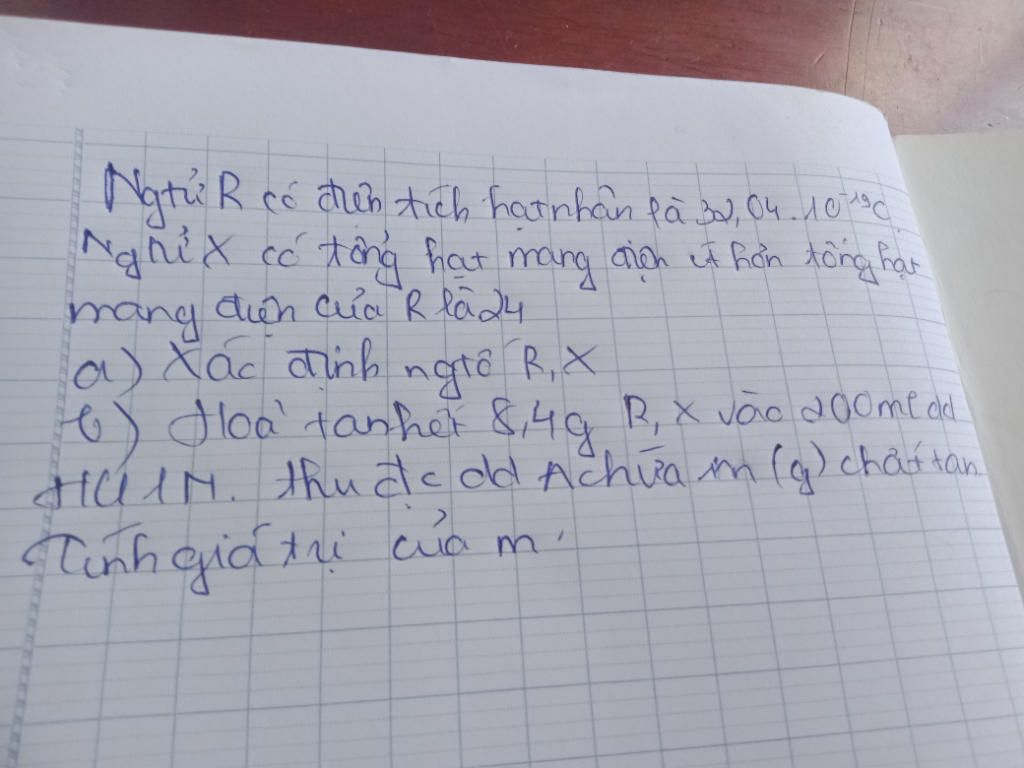 Ngtử R có điện tích hạt nhân là 32,04.10⁻¹⁹C
Ngtử X có tổng hạt mang điện ít hơn tổng hạt
mang điện của R là 24
a) Xác định ngtố R, X
b) Hoà tan hết 8,4g R, X vào 200ml dd
HCl 1M. thu đc dd A chứa m (g) chất tan.
Tính giá trị của m.